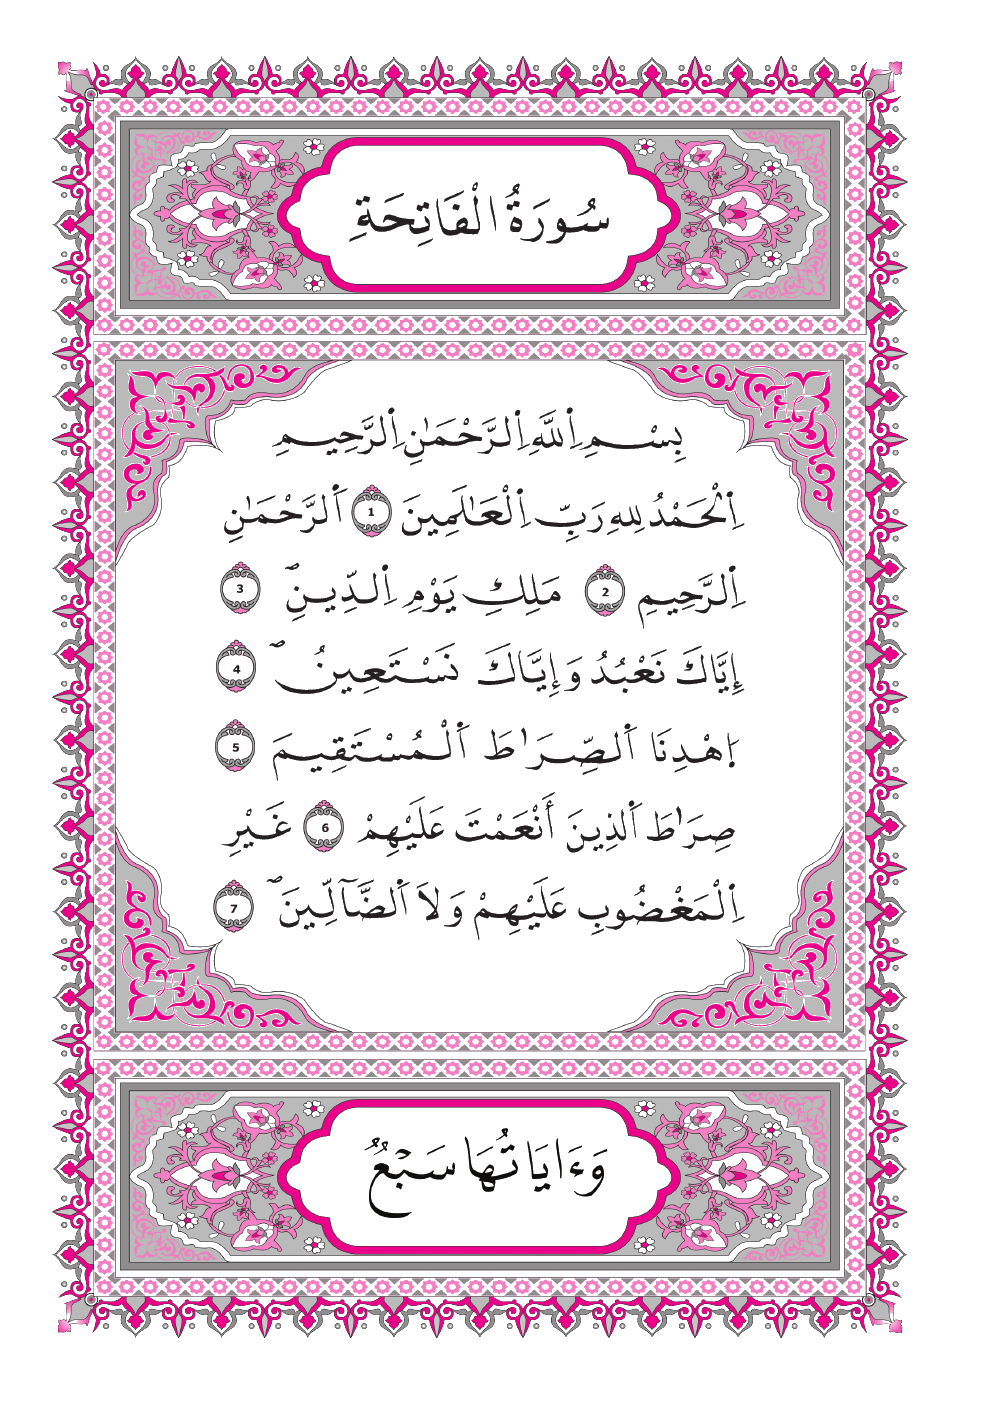 سُورَةُ الْفَاتِحَةِ
بِسْمِ اِ۬للَّهِ اِ۬لرَّحْمَٰنِ اِ۬لرَّحِيمِ
اِ۬لْحَمْدُ لِلهِ رَبِّ اِ۬لْعَٰلَمِينَ 1 اَ۬لرَّحْمَٰنِ
اِ۬لرَّحِيمِ 2 مَلِكِ يَوْمِ اِ۬لدِّينِۖ 3
إِيَّاكَ نَعْبُدُ وَإِيَّاكَ نَسْتَعِينُۖ 4
اَ۪هْدِنَا اَ۬لصِّرَٰطَ اَ۬لْمُسْتَقِيمَ 5
صِرَٰطَ اَ۬لذِينَ أَنْعَمْتَ عَلَيْهِمْ 6 غَيْرِ
اِ۬لْمَغْضُوبِ عَلَيْهِمْ وَلَا اَ۬لضَّآلِّينَۖ 7
وَءَايَاتُهَا سَبْعٌ